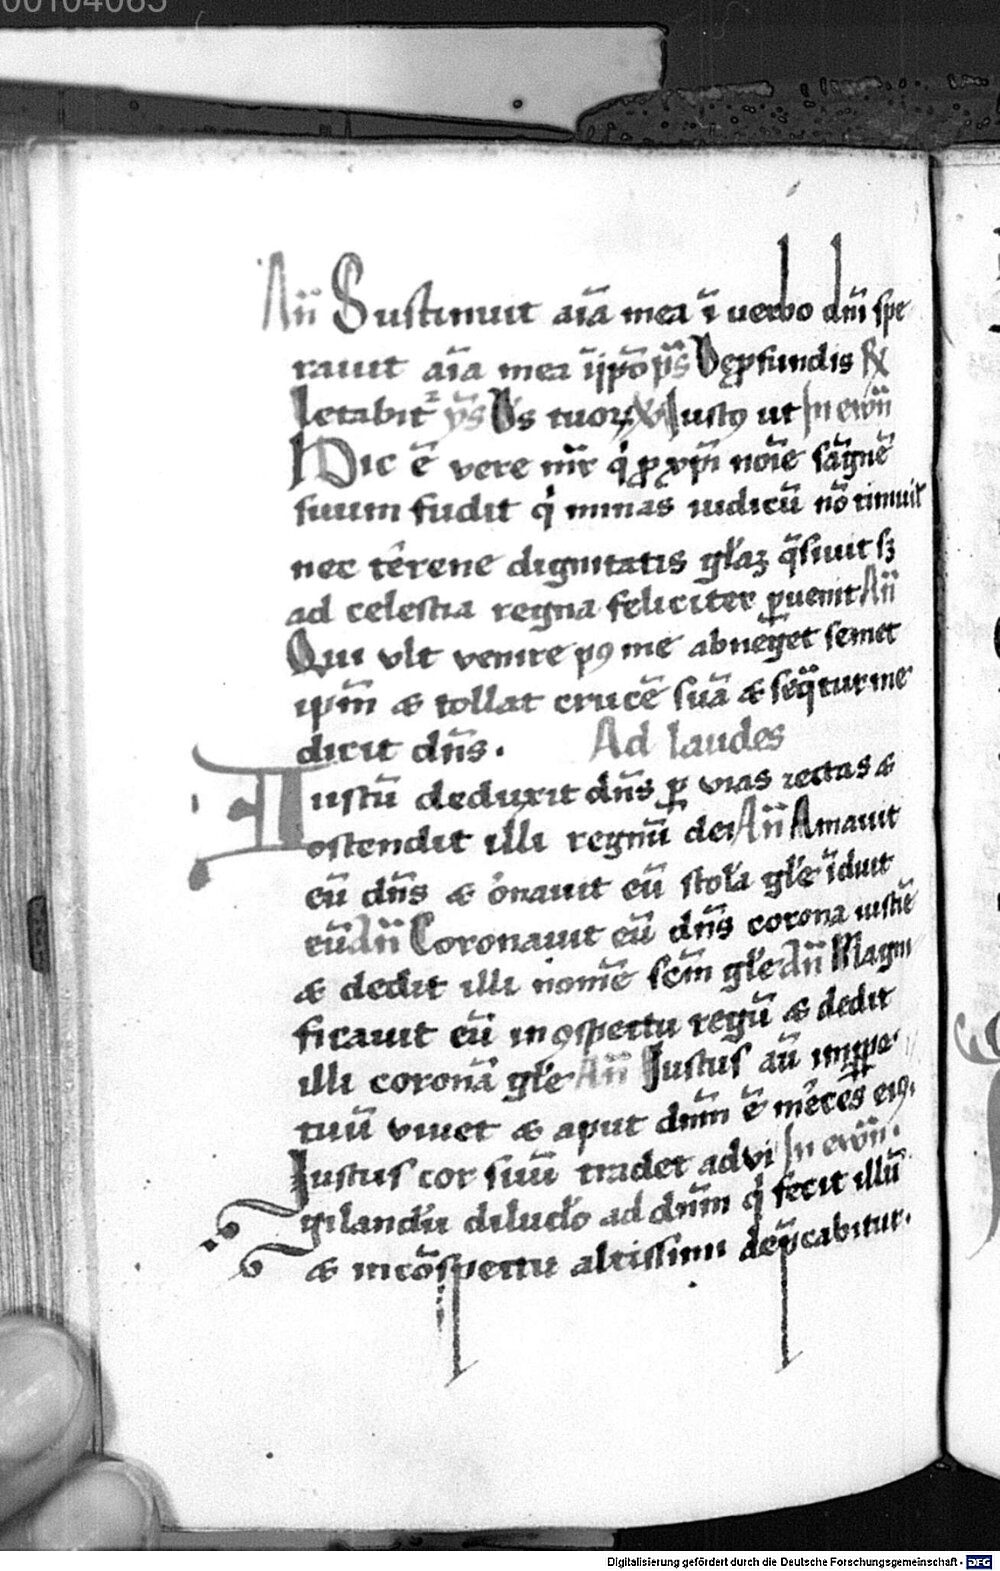 00104065
Añ Sustinuit aīa mea ī verbo dñi spe
rauit aīa mea ī ps De pfundis
letabit ps tuor Iustꝯ ut In ewñ
Hic ē vere mr̄ q̇ ꝓ xp̄i noīe sāgnē
suum fudit q̇ minas iudicū nō timuit
nec terrene dignitatis gl̄aꝫ q̄siuit sꝫ
ad celestia regna feliciter ꝑuenit Añ
Qui vlt venire pꝯ me abneget semet
ipm̄ & tollat crucē suā & seq̄tur me
dicit dñs. Ad laudes
Iustū deduxit dñs ꝑ vias rectas &
ostendit illi regnū dei Añ Amauit
eū dñs & ornauit eū stola gl̄e īduit
eū Añ Coronauit eū dñs corona iustic̄e
& dedit illi nomē scm̄ gl̄e Añ Magni
ficauit eū in ꝯspectu regū & dedit
illi coronā gl̄e Añ Iustus aū inꝑpe
tuū viuet & aput dñm ē merces eiꝯ.
Iustus cor suū tradet ad vi In ewñ.
gilandū dilucl̄o ad dñm q̇ fecit illū
& in cōspectu altissimi dep̄cabitur.
Digitalisierung gefördert durch die Deutsche Forschungsgemeinschaft - DFG